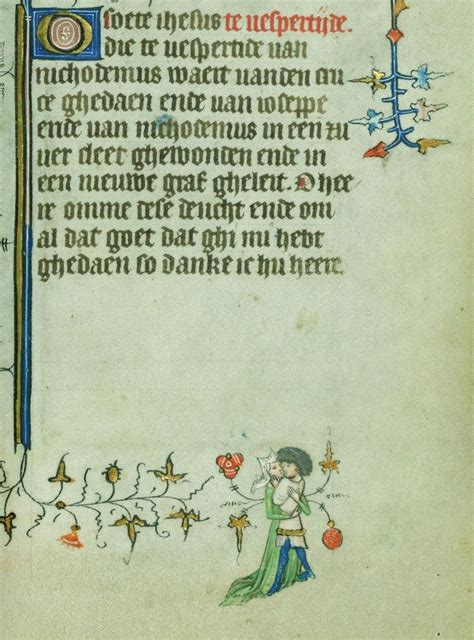 O soete ihesus te uespertijde.
die te uespertide van
nichodemus waert vanden cru
ce ghedaen ende van ioseppe
ende van nichodemus in een zu
uer cleet ghewonden ende in
een nieuwe graf gheleit. O hee
re omme dese deucht ende om
al dat goet dat ghi mi hebt
ghedaen so danke ic hu heere